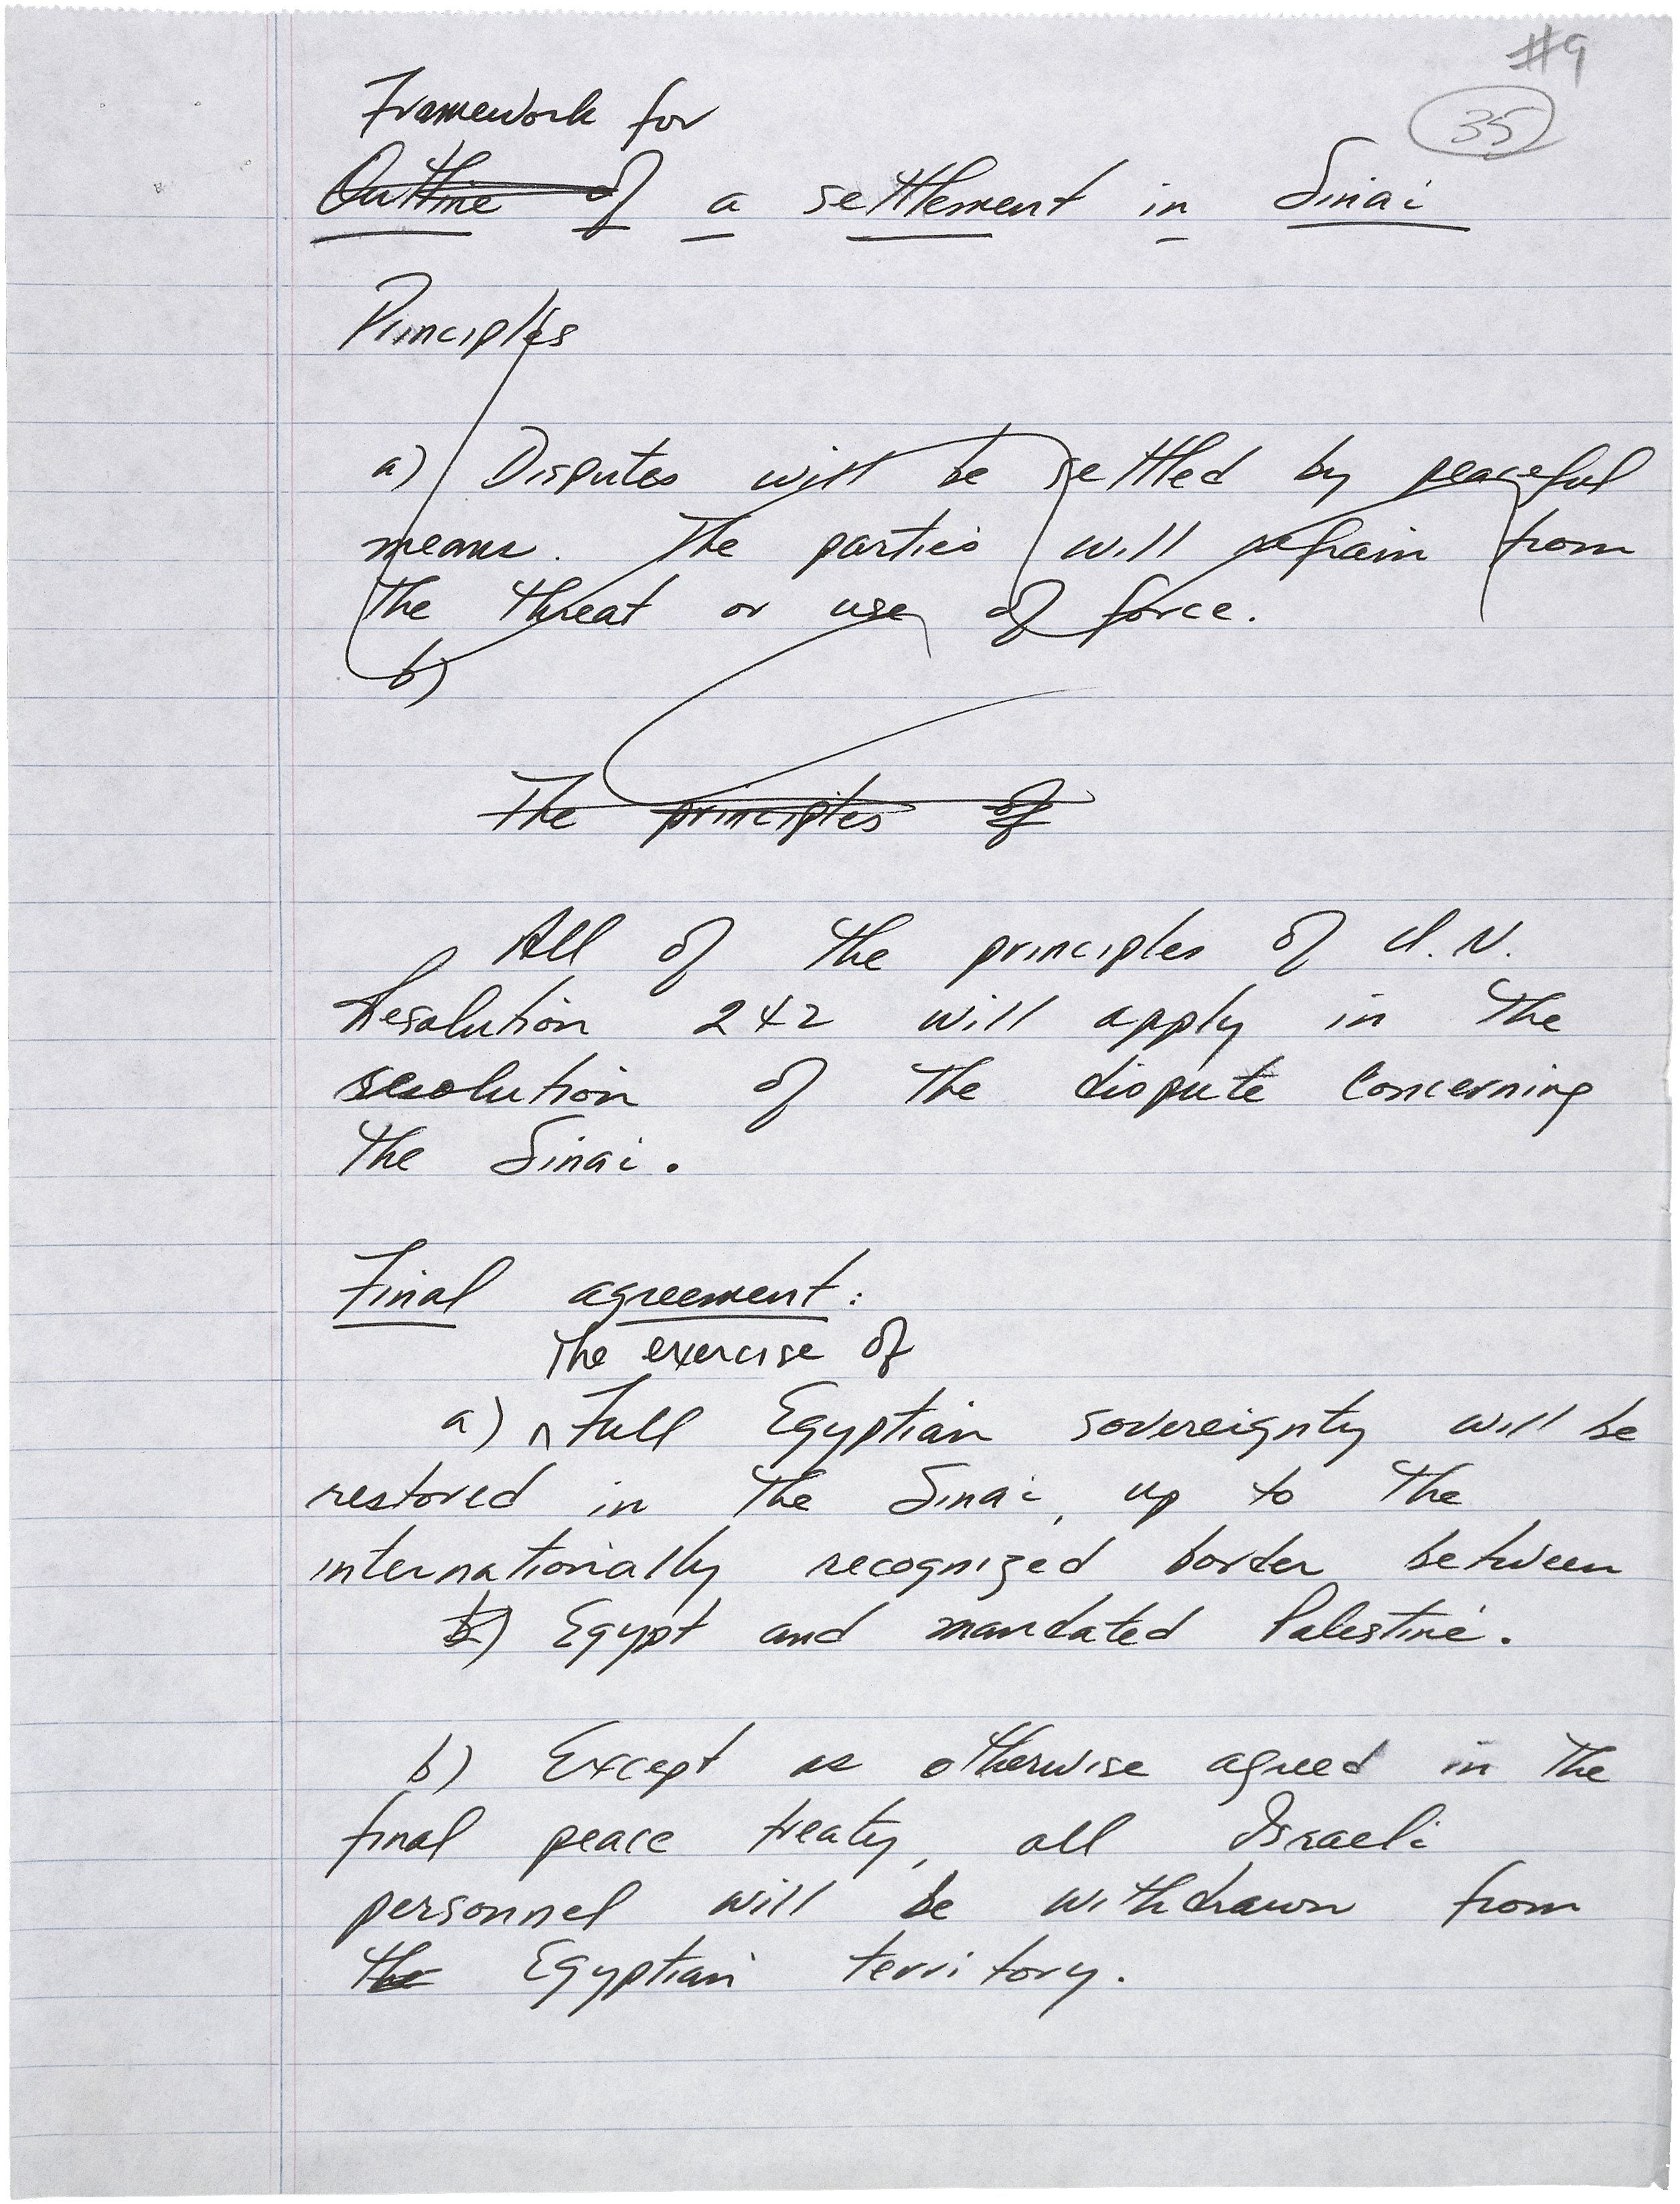 #9
35
Framework for
Outline of a settlement in Sinai
Principles
a) Disputes will be settled by peaceful
means. The parties will refrain from
the threat or use of force.
b)
The principles of
All of the principles of U.N.
Resolution 242 will apply in the
resolution of the dispute concerning
the Sinai.
Final agreement:
the exercise of
a) Full Egyptian sovereignty will be
restored in the Sinai, up to the
internationally recognized border between
b) Egypt and mandated Palestine.
b) Except as otherwise agreed in the
final peace treaty, all Israeli
personnel will be withdrawn from
the Egyptian territory.